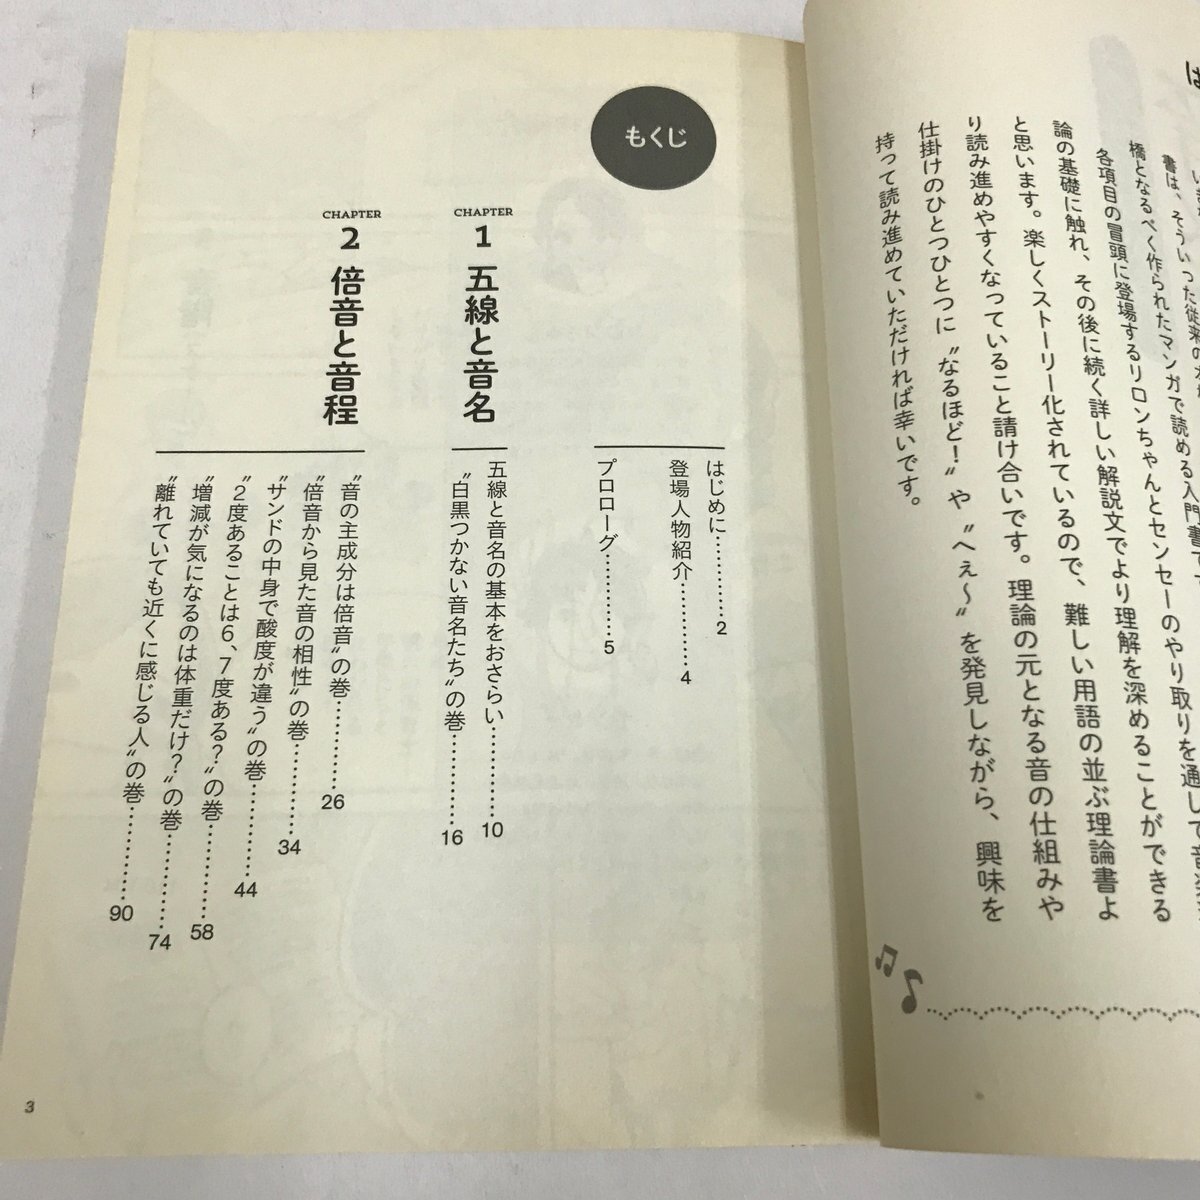 は
書は、そういった従来の
橋となるべく作られたマンガで読める入門書で
各項目の冒頭に登場するリロンちゃんとセンセーのやり取りを通して音楽
論の基礎に触れ、その後に続く詳しい解説文でより理解を深めることができる
と思います。楽しくストーリー化されているので、難しい用語の並ぶ理論書よ
り読み進めやすくなっていること請け合いです。理論の元となる音の仕組みや
仕掛けのひとつひとつに〝なるほど!〟や〝へぇ〜〟を発見しながら、興味を
持って読み進めていただければ幸いです。
もくじ
はじめに…………2
登場人物紹介…………4
プロローグ…………5
CHAPTER
1 五線と音名
五線と音名の基本をおさらい…………10
〝白黒つかない音名たち〟の巻…………16
CHAPTER
2 倍音と音程
〝音の主成分は倍音〟の巻…………26
〝倍音から見た音の相性〟の巻…………34
〝サンドの中身で酸度が違う〟の巻…………44
〝2度あることは6、7度ある?〟の巻…………58
〝増減が気になるのは体重だけ?〟の巻…………74
〝離れていても近くに感じる人〟の巻…………90
3